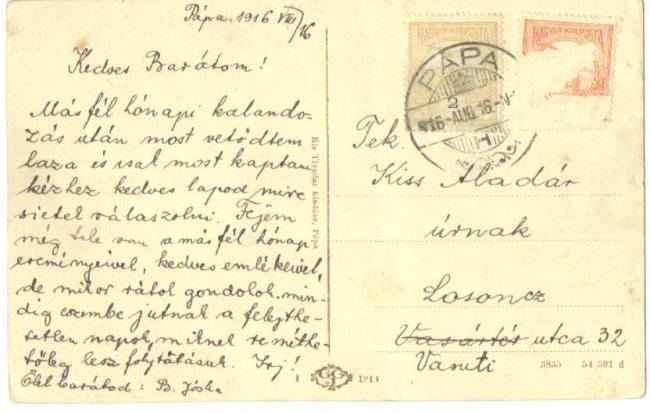 Pápa. 1916 VIII/16
Kedves Barátom!
Másfél hónapi kalando-
zás után most vetődtem
haza és csak most kaptam
kézhez kedves lapod mire
sietek válaszolni. Fejem
még tele van a másfél hónap
eredményeivel, kedves emlékeivel,
de mikor rátok gondolok, min-
dig eszembe jutnak a felejthe-
tetlen napok, miknek remélhe-
tőleg lesz folytatásuk. Írj!
Ölel barátod: B. Jóska
Kis Tivadar kiadása, Pápa
1 1914
MAGYAR KIR. POSTA
MAGYAR KIR. POSTA
2
PÁPA
916-AUG.16.
Tek.
Kiss Aladár
úrnak
Losoncz
Vasártés utca 32
Vasuti
3855 54.591 d